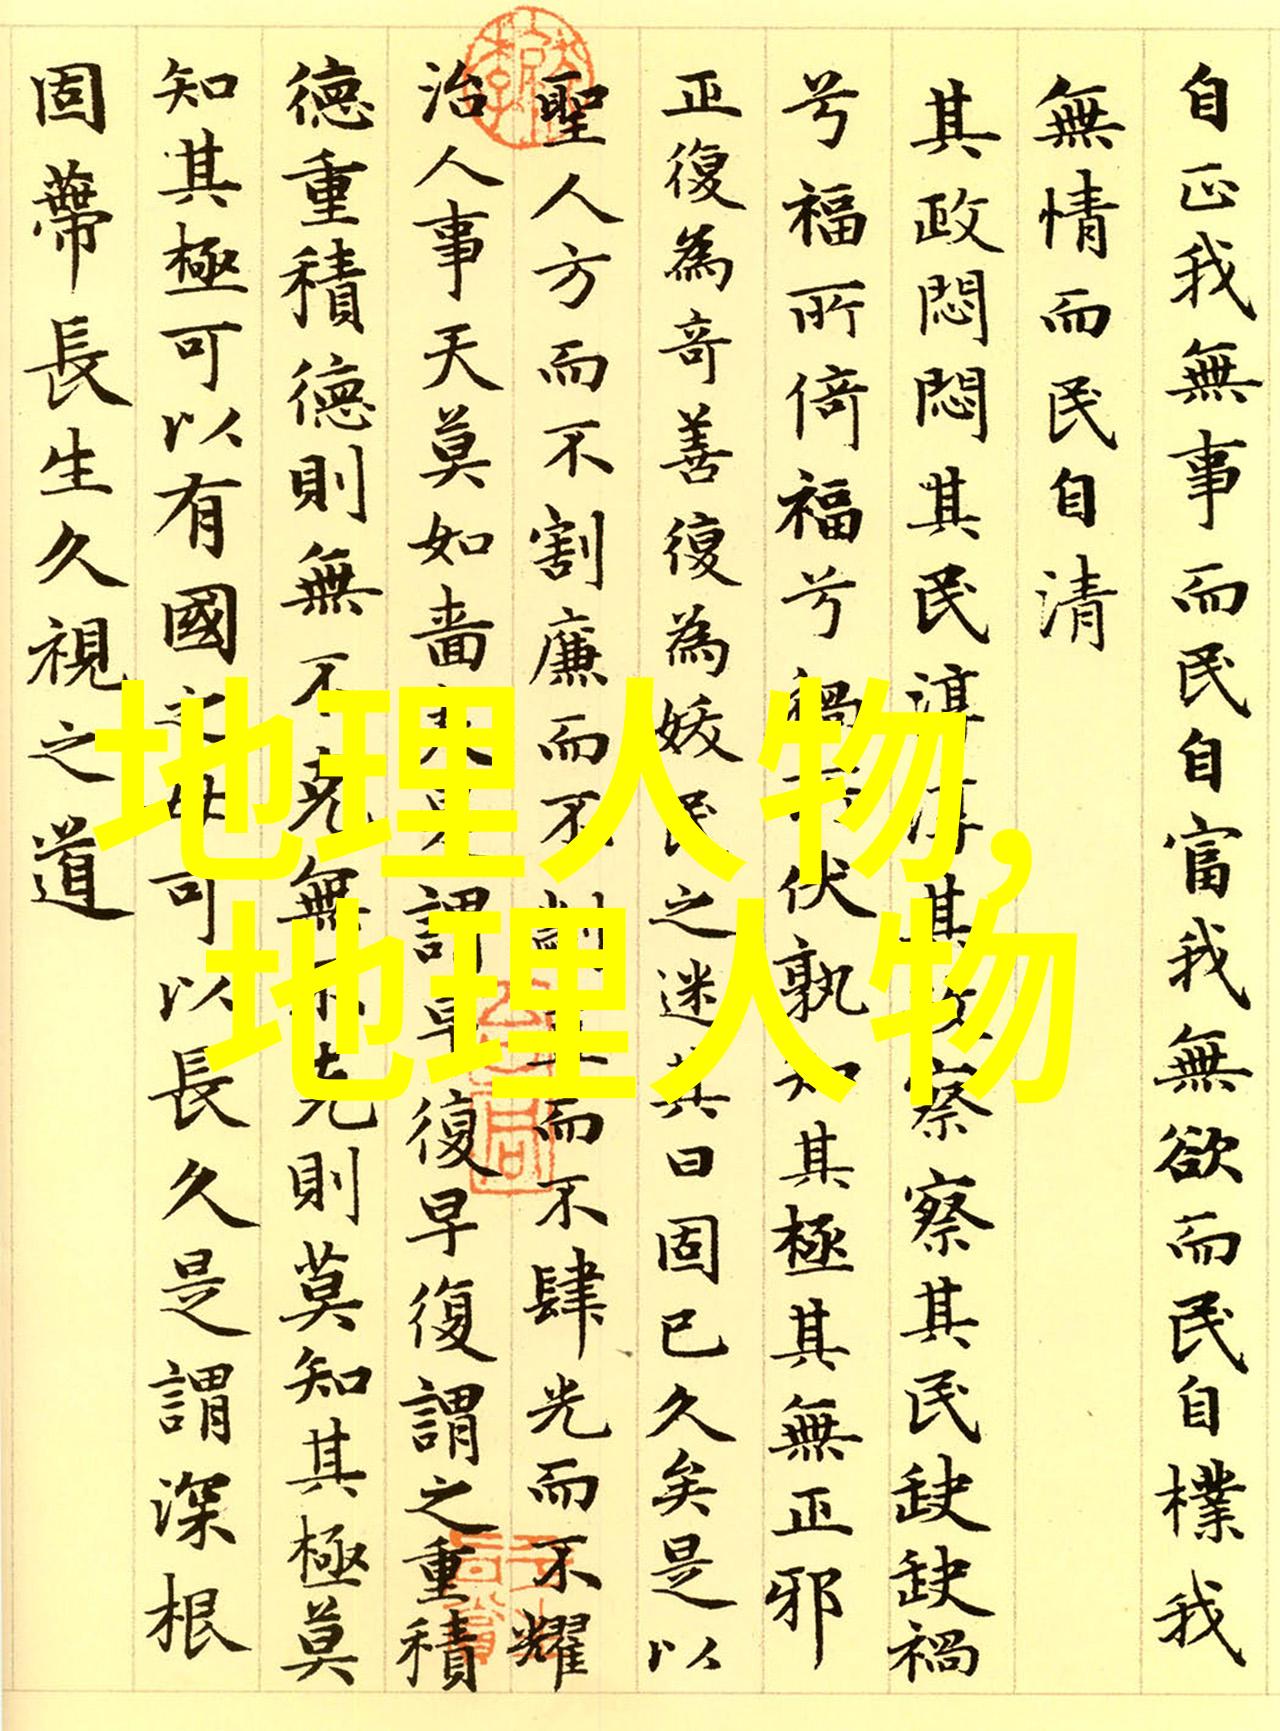 自正我無事而民自富我無欲而民自樸我
無情而民自清
其政悶悶其民淳淳其政察察其民缺缺禍
兮福所倚福兮禍所伏孰知其極其無正邪
正復為奇善復為妖民之迷其日固已久矣是以
聖人方而不割廉而不劌直而不肆光而不耀
治人事天莫如嗇夫是謂早復早復謂之重積
德重積德則無不克無不克則莫知其極莫
知其極可以有國之母可以長久是謂深根
固蔕長生久視之道
地理人物,
地理人物